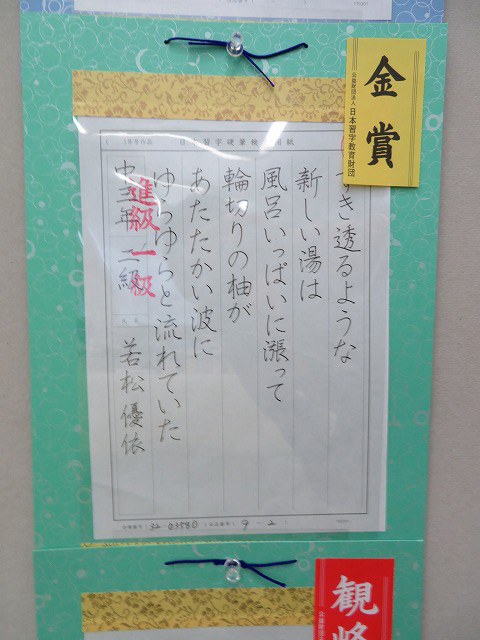 金賞
公益財団法人 日本習字教育財団
月号作品 日本習字硬筆検定用紙
すき透るような
新しい湯は
風呂いっぱいに漲って
輪切りの柚が
あたたかい波に
ゆらゆらと流れていた
中三年 二級 若松優依
進級一級
32-03580
9-2
観峰